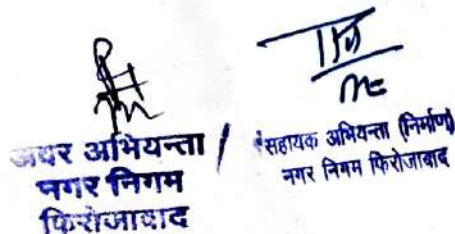 अवर अभियन्ता /
नगर निगम
फिरोजाबाद
सहायक अभियन्ता (निर्माण)
नगर निगम फिरोजाबाद